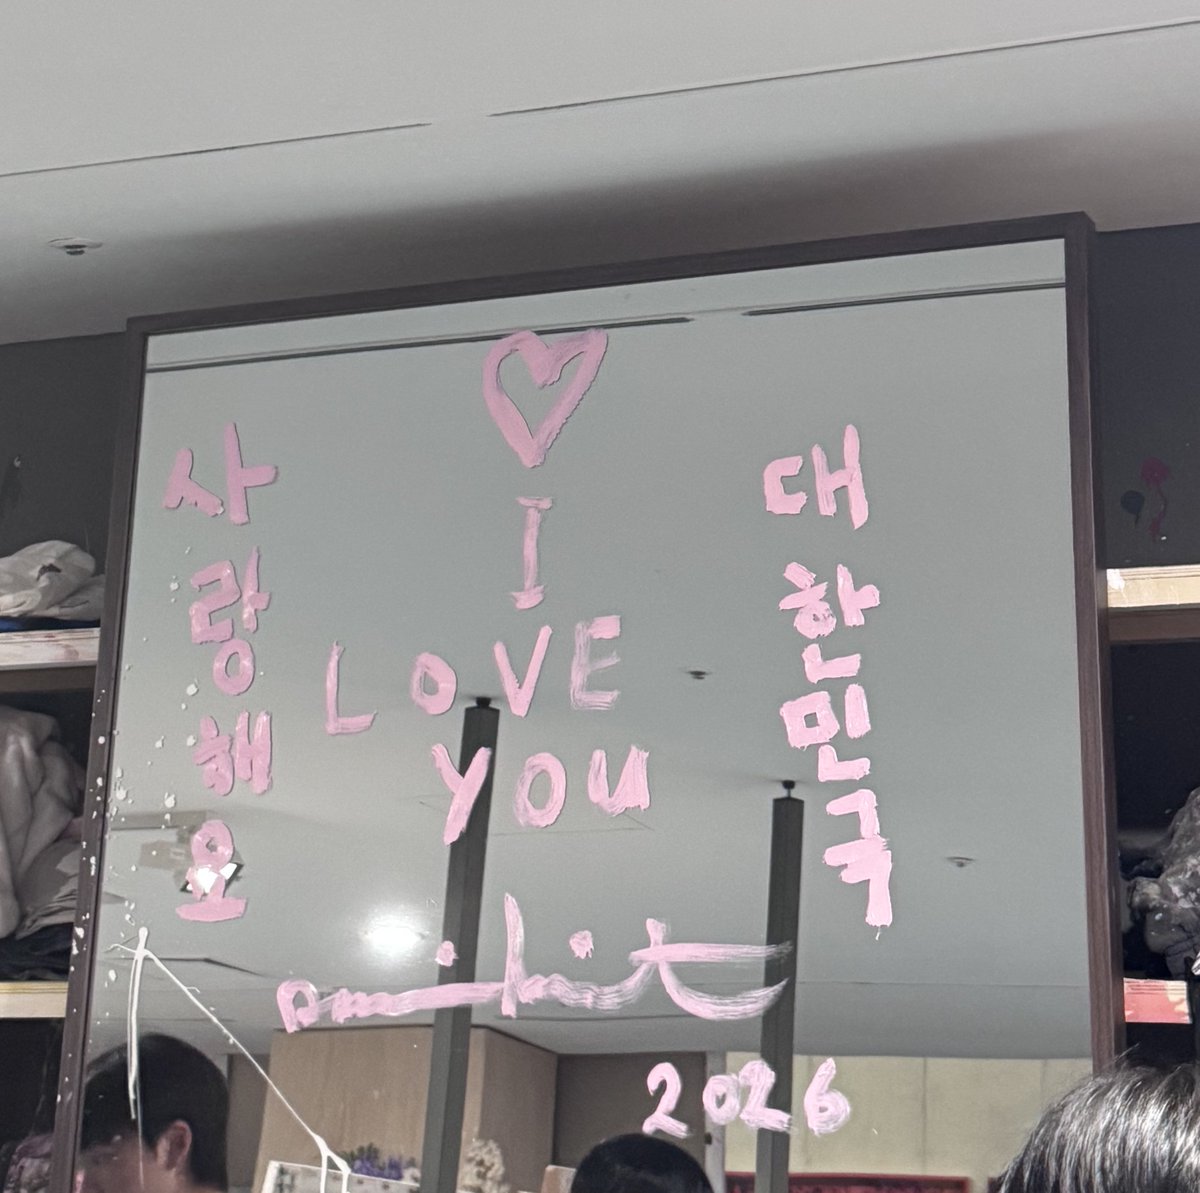 사랑해요
I
LOVE
YOU
대한민국
2026